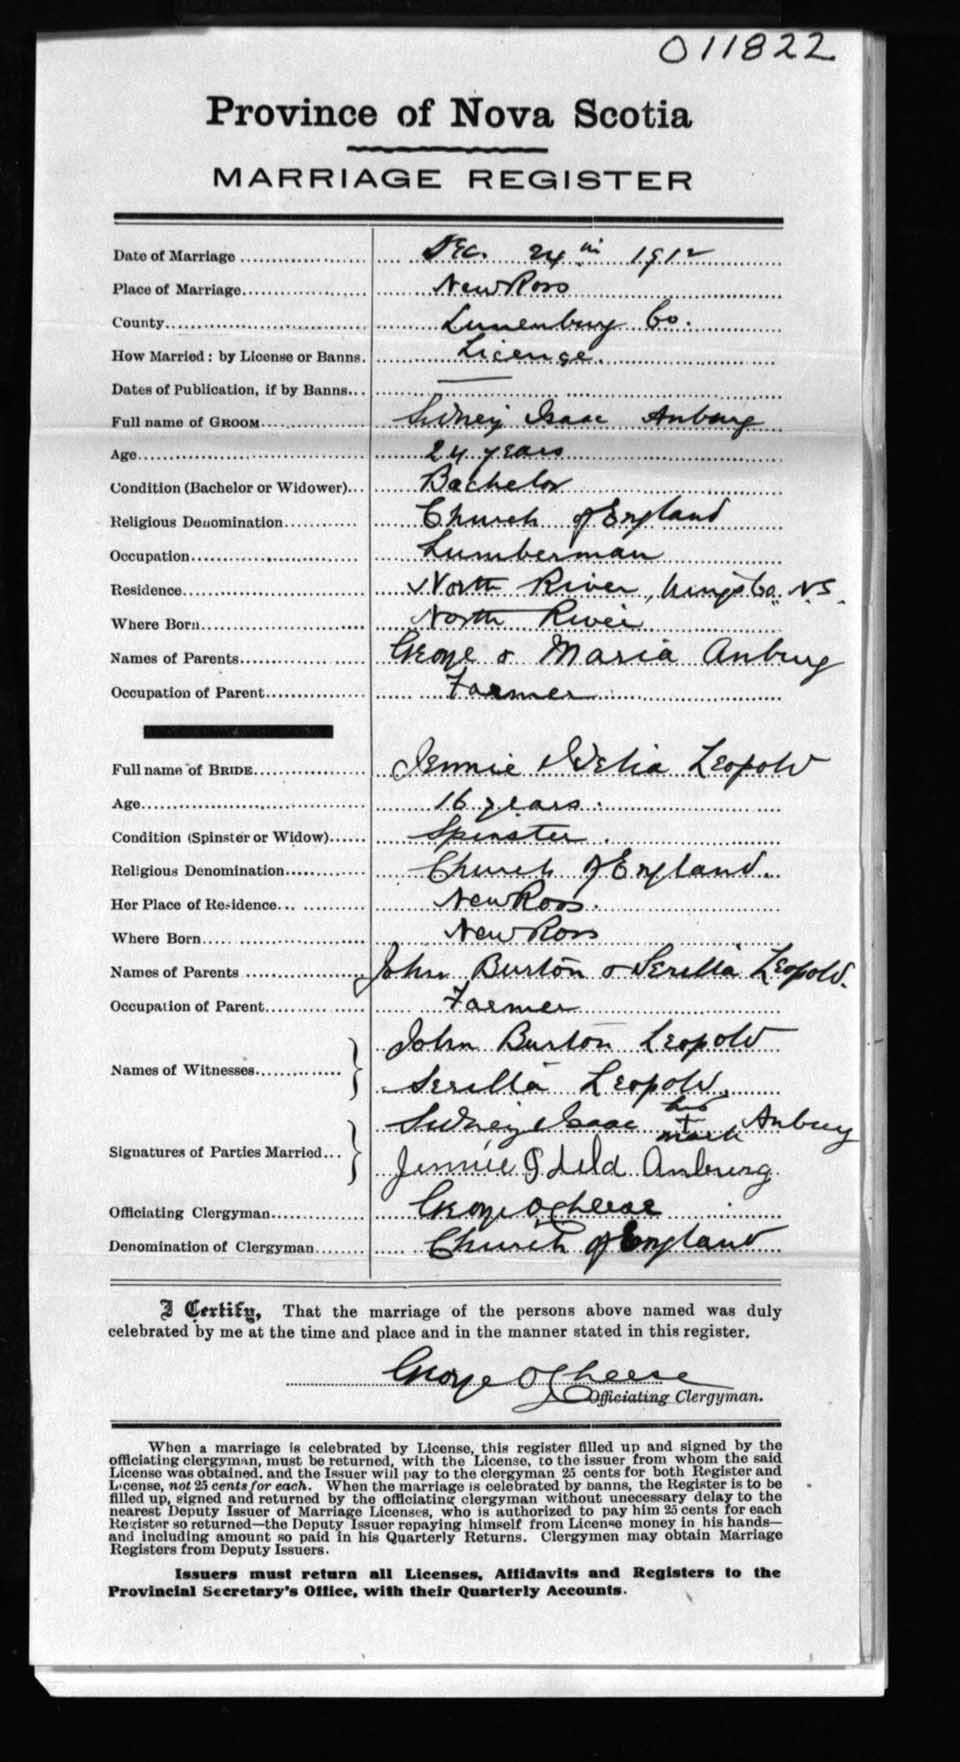 011822
Province of Nova Scotia
MARRIAGE REGISTER
Date of Marriage Dec. 24th 1912
Place of Marriage New Ross
County Lunenburg Co.
How Married: by License or Banns. License.
Dates of Publication, if by Banns —
Full name of GROOM Sidney Isaac Anburg
Age 24 years
Condition (Bachelor or Widower) Bachelor
Religious Denomination Church of England
Occupation Lumberman
Residence North River, Kings Co. N.S.
Where Born North River
Names of Parents George & Maria Anburg
Occupation of Parent Farmer
Full name of BRIDE Jennie Leopold
Age 16 years.
Condition (Spinster or Widow) Spinster.
Religious Denomination Church of England.
Her Place of Residence New Ross.
Where Born New Ross
Names of Parents John Burton & Serilla Leopold.
Occupation of Parent Farmer
Names of Witnesses John Burton Leopold
Serilla Leopold.
Signatures of Parties Married Sidney Isaac his + mark Anburg
Jennie Anburg
Officiating Clergyman George Cheese
Denomination of Clergyman Church of England
I Certify, That the marriage of the persons above named was duly
celebrated by me at the time and place and in the manner stated in this register.
George Cheese
Officiating Clergyman.
When a marriage is celebrated by License, this register filled up and signed by the
officiating clergyman, must be returned, with the License, to the issuer from whom the said
License was obtained. and the Issuer will pay to the clergyman 25 cents for both Register and
License, not 25 cents for each. When the marriage is celebrated by banns, the Register is to be
filled up, signed and returned by the officiating clergyman without unnecessary delay to the
nearest Deputy Issuer of Marriage Licenses, who is authorized to pay him 25 cents for each
Register so returned—the Deputy Issuer repaying himself from License money in his hands—
and including amount so paid in his Quarterly Returns. Clergymen may obtain Marriage
Registers from Deputy Issuers.
Issuers must return all Licenses, Affidavits and Registers to the
Provincial Secretary's Office, with their Quarterly Accounts.